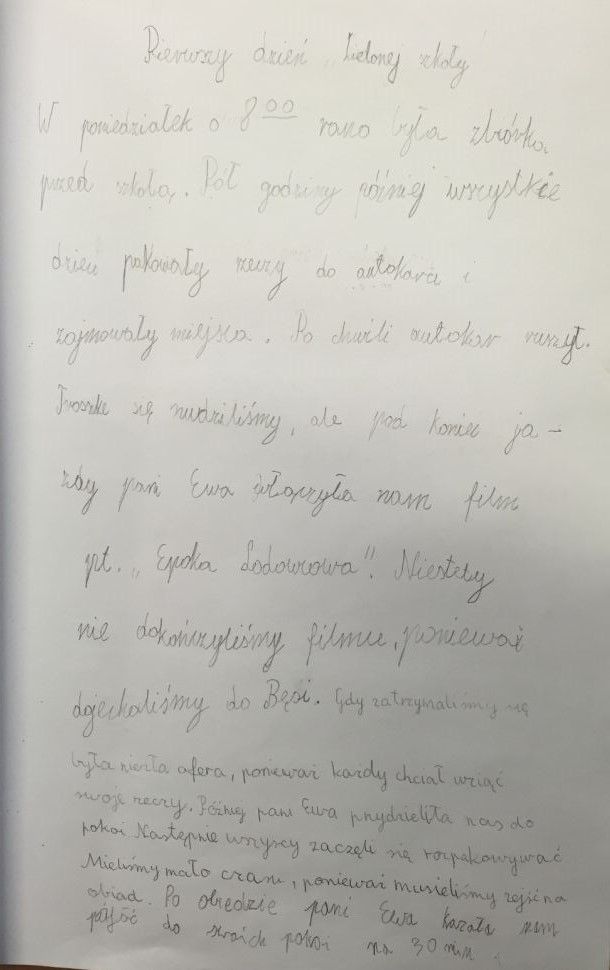 Pierwszy dzień „Zielonej szkoły"
W poniedziałek o 8⁰⁰ rano była zbiórka
przed szkołą. Pół godziny później wszystkie
dzieci pakowały rzeczy do autokaru i
zajmowały miejsca. Po chwili autokar ruszył.
Troszkę się nudziliśmy, ale pod koniec ja-
zdy pani Ewa włączyła nam film
pt. „Epoka Lodowcowa". Niestety
nie dokończyliśmy filmu, ponieważ
dojechaliśmy do Bęsi. Gdy zatrzymaliśmy się
była niezła afera, ponieważ każdy chciał wziąć
swoje rzeczy. Później pani Ewa przydzieliła nas do
pokoi Następnie wszyscy zaczęli się rozpakowywać
Mieliśmy mało czasu, ponieważ musieliśmy zejść na
obiad. Po obiedzie pani Ewa kazała nam
pójść do swoich pokoi na 30 min.